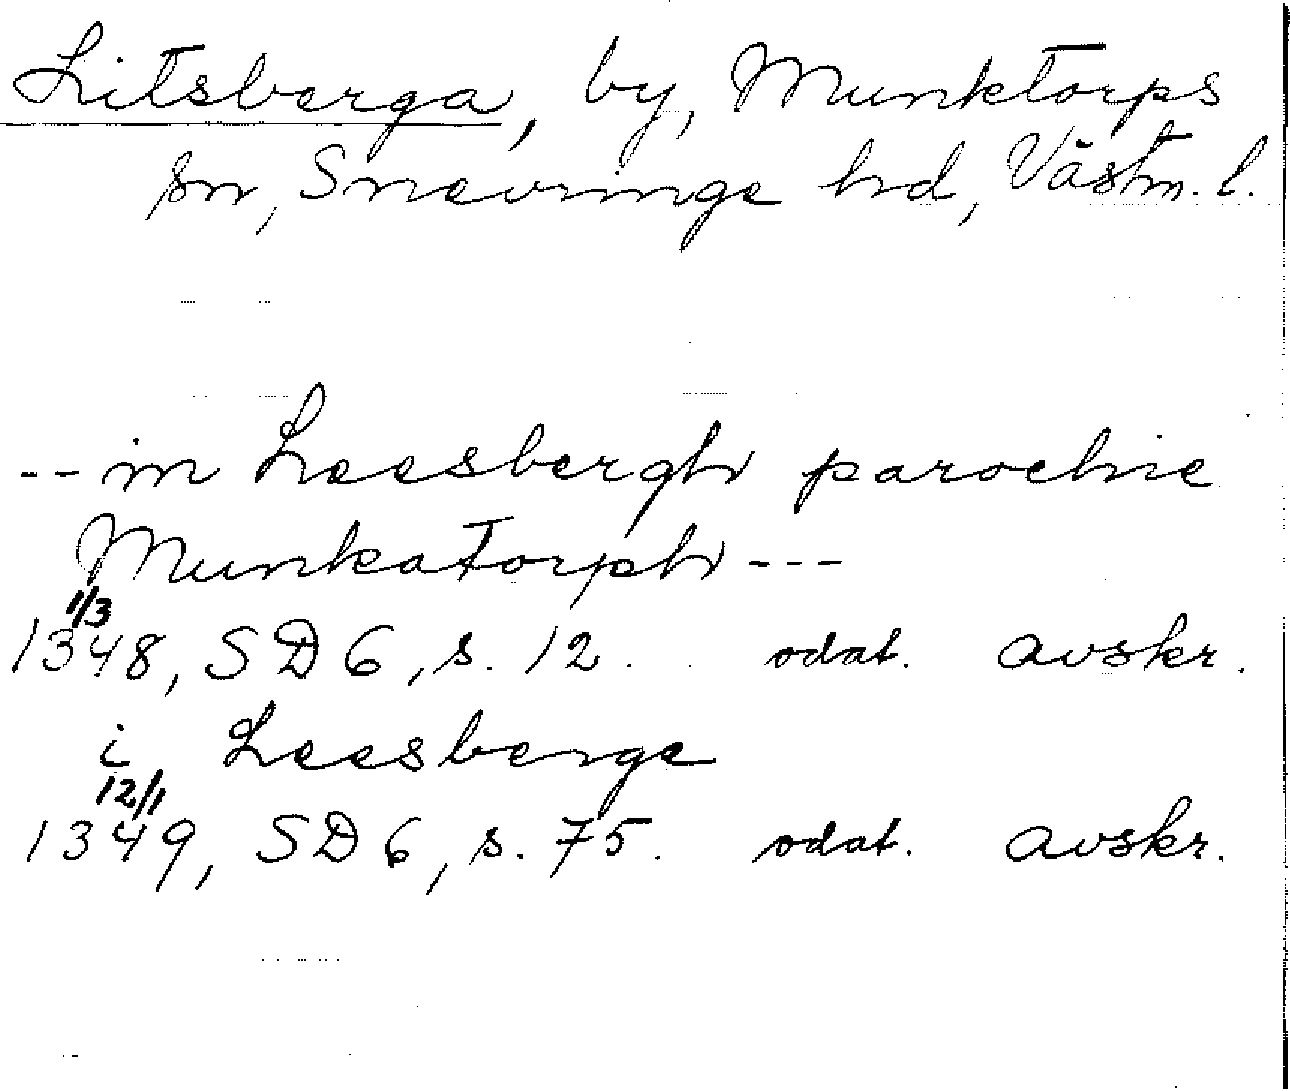 Litsberga, by, Munktorps
sn, Snevringe hd, Västm. l.
-- in Leesbergh parochie
Munkatorph ---
1/3
1348, SD 6, s. 12. odat. avskr.
i Leesberge
12/1
1349, SD 6, s. 75. odat. avskr.